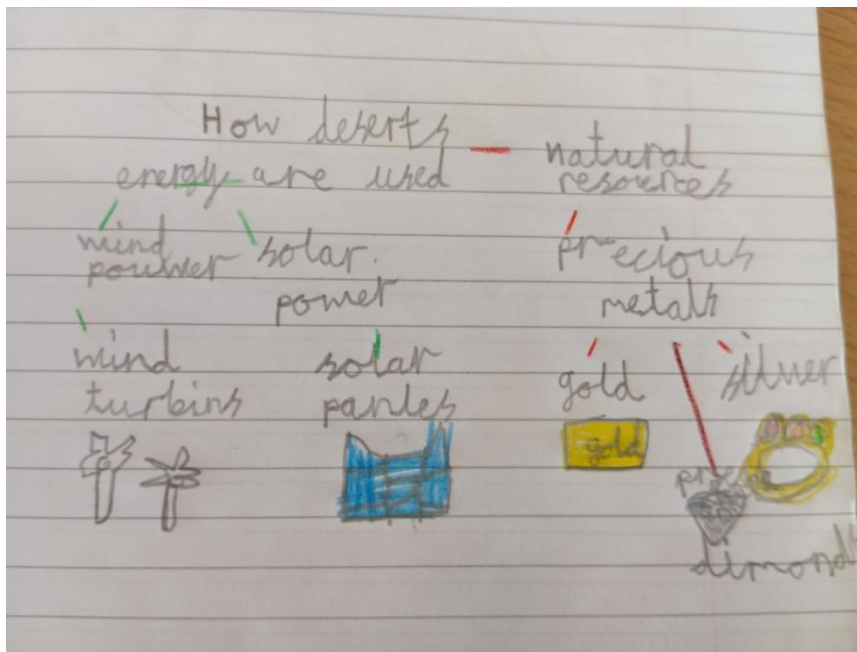 How deserts
energy are used
natural
resources
wind
pouwer
solar
power
precious
metals
wind
turbins
solar
panles
gold
silver
gold
dimonds